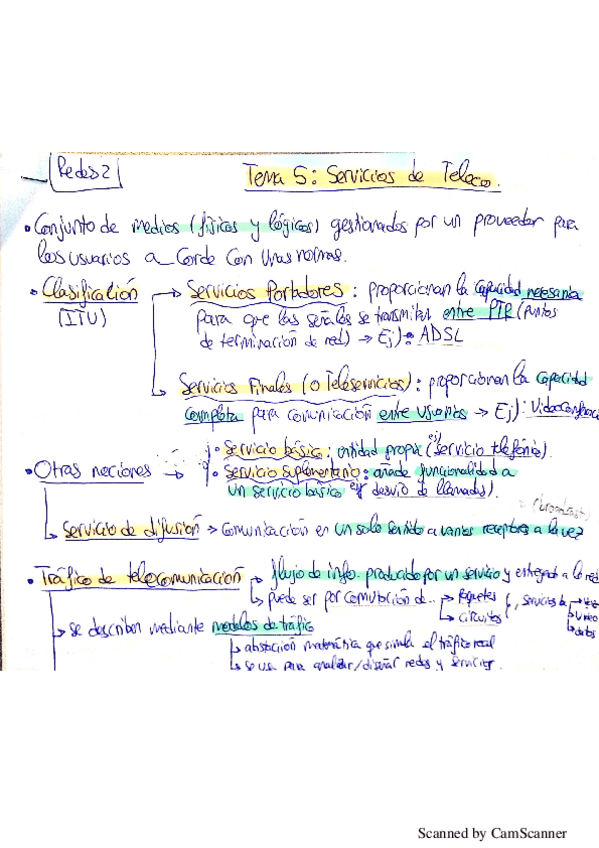 Redes 2
Tema 5: Servicios de Teleco.
• Conjunto de medios (físicos y lógicos) gestionados por un proveedor para
los usuarios acorde con unas normas.
• Clasificación → Servicios Portadores: proporcionan la capacidad necesaria
(ITU) para que las señales se transmitan entre PTR (puntos
de terminación de red) → Ej): ADSL
Servicios Finales (o Teleservicios): proporcionan la capacidad
completa para comunicación entre usuarios → Ej): Videoconferencia
• Servicio básico: entidad propia (ej servicio telefónico).
• Otras nociones → • Servicio suplementario: añade funcionalidad a
un servicio básico (ej desvío de llamadas).
(broadcast)
Servicio de difusión → comunicación en un solo sentido a varios receptores a la vez
• Tráfico de telecomunicación → flujo de info. producido por un servicio y entregado a la red
puede ser por conmutación de... → paquetes, servicios de → voz
→ circuitos → video
→ datos
→ se describen mediante modelos de tráfico
abstracción matemática que simula el tráfico real
se usa para analizar/diseñar redes y servicios.
Scanned by CamScanner